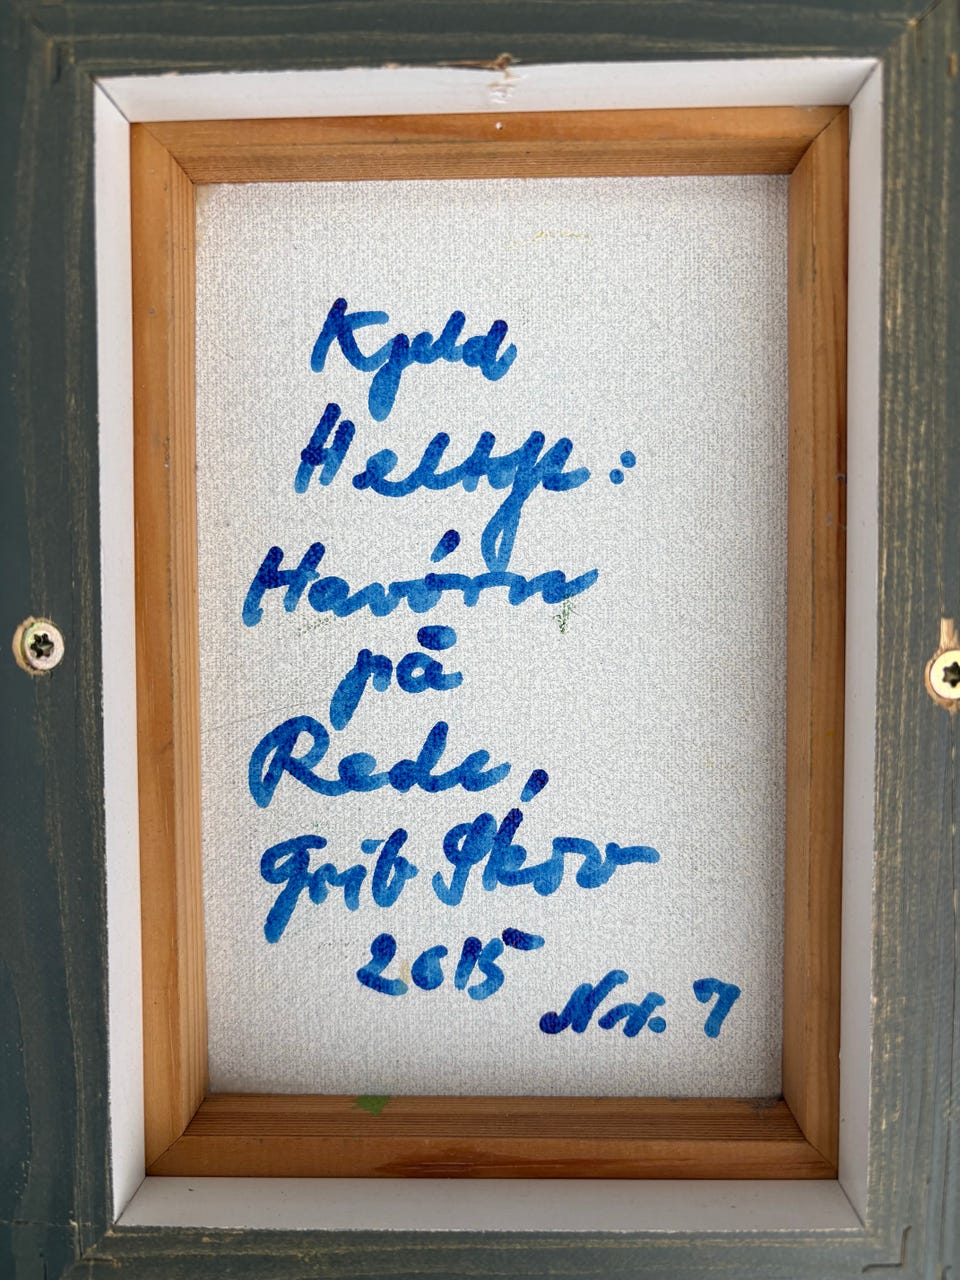 Kjeld
Heltoft:
Havórn
på
Rede,
Grib Skov
2015
Nr. 7